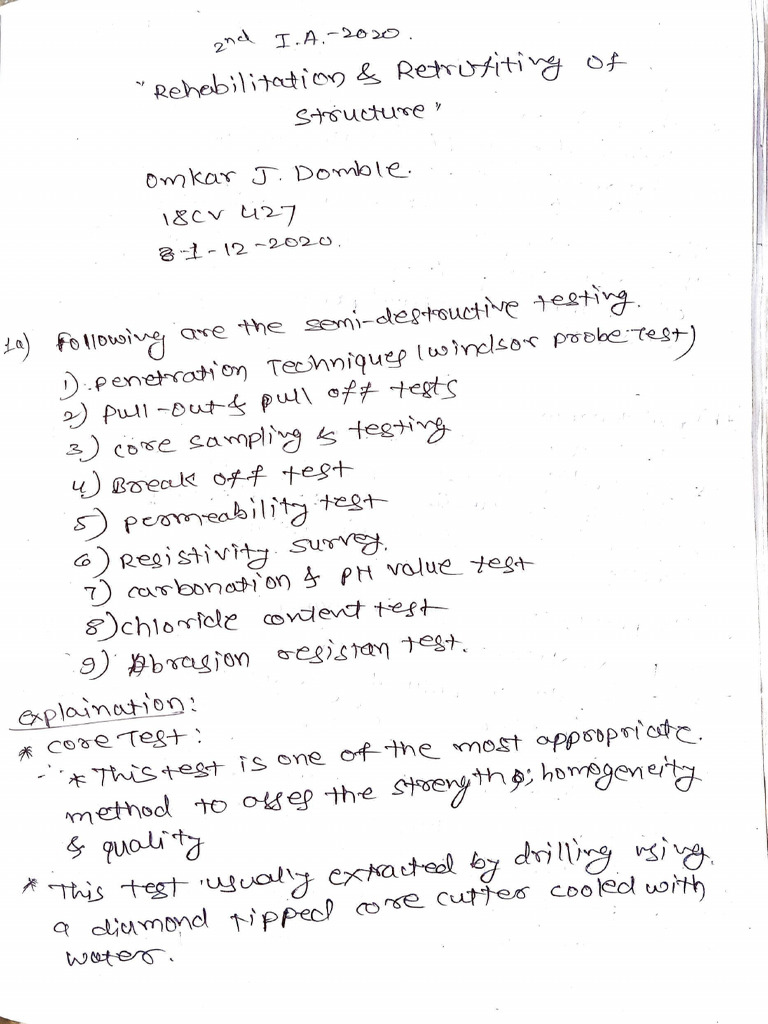 2nd I.A.-2020.
"Rehabilitation & Retrofiting of
Structure"
Omkar J. Domble.
18CV 427
1-12-2020.
1a) Following are the semi-destructive testing.
1) penetration Techniques (windsor probe test)
2) Pull-out & pull off tests
3) core sampling & testing
4) Break off test
5) permeability test
6) Resistivity survey.
7) carbonation & PH value test
8) chloride content test
9) Abrasion resistan test.
explaination:
* core Test:
* This test is one of the most appropriate.
method to asses the strength, homogeneity
& quality
* This test usually extracted by drilling using
a diamond tipped core cutter cooled with
water.